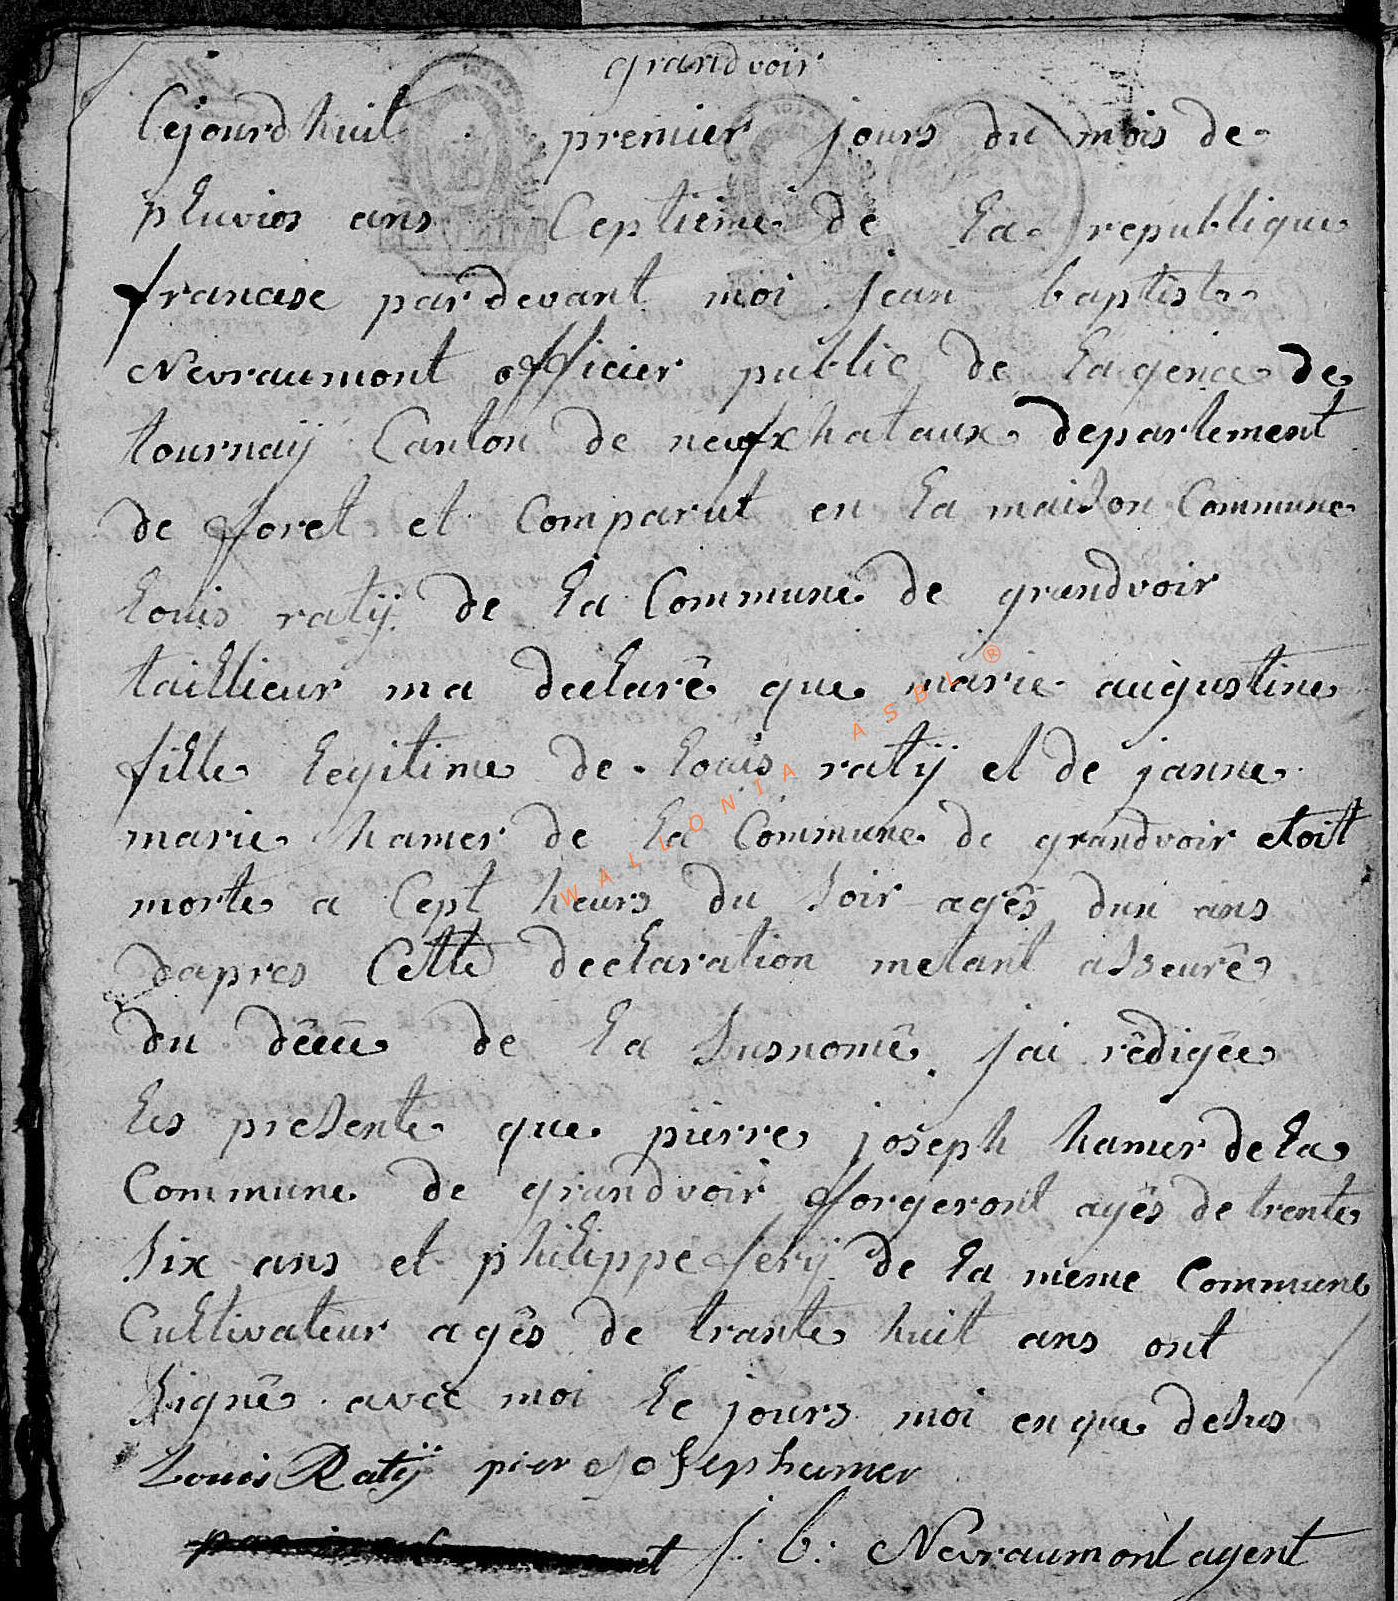 grandvoir
Cejourdhuit premier jours du mois de
pluvios ans Ceptieme de la republique
francise pardevant moi jean baptiste
Nevraumont officier public de lagence de
tournaÿ Canton de neufxhataux departement
de foret et Comparut en la maison Commune
louis ratÿ de la Commune de grandvoir
taillieur ma declarê que marie augustine
fille legitime de louis ratÿ et de janne
marie hamer de la Commune de grandvoir etoit
morte a Cept heurs du soir agês dun ans
dapres Cette declaration metant asseurê
du dêcee de la susnomê jai rêdigêe
les presente que pierre joseph hamer de la
Commune de grandvoir fforgeront agês de trente
six ans et philippe ferÿ de la meme Commune
Cultivateur agês de trante huit ans ont
signê avec moi le jours moi en que desus
Louis Ratÿ pier Josephamer
j: b: Nevraumont agent
WALLONIA ASBL ®